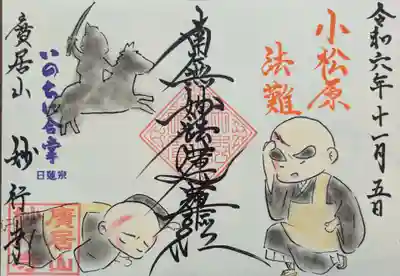 令和六年十一月五日
小松原
法難
南無妙法蓮華経
いのちに合掌
日蓮宗
廣居山
妙行寺
廣居山